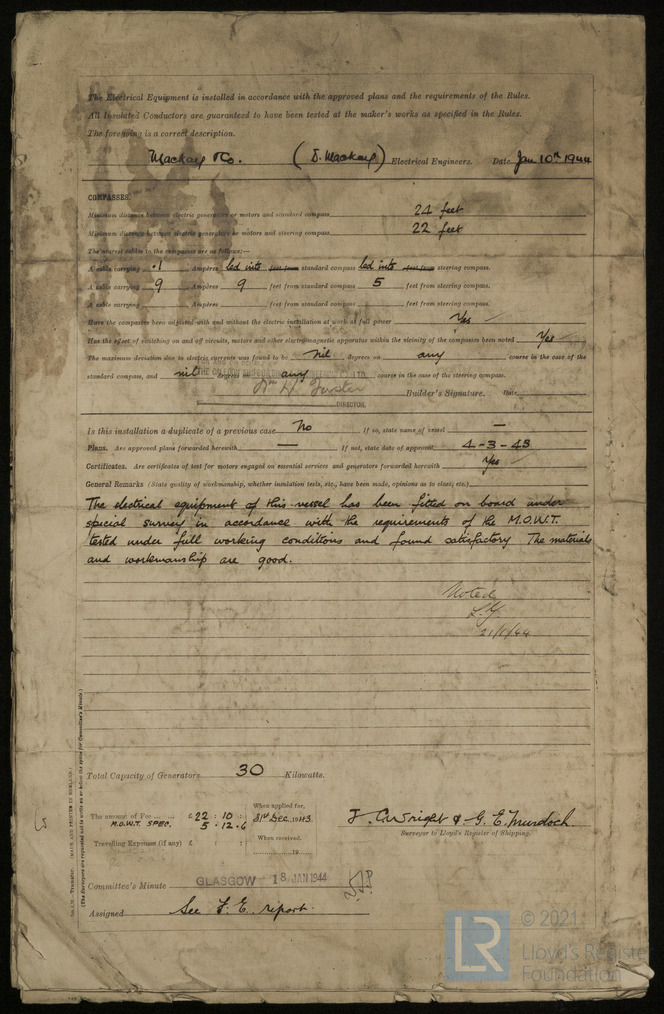 The Electrical Equipment is installed in accordance with the approved plans and the requirements of the Rules.
All Insulated Conductors are guaranteed to have been tested at the maker's works as specified in the Rules.
The foregoing is a correct description.
Mackay & Co. (D. Mackay) Electrical Engineers. Date Jan 10th 1944
COMPASSES.
Minimum distance between electric generators or motors and standard compass 24 feet
Minimum distance between electric generators or motors and steering compass 22 feet
The nearest cables to the compasses are as follows:—
A cable carrying .1 Ampères led into standard compass led into steering compass.
A cable carrying 9 Ampères 9 feet from standard compass 5 feet from steering compass.
A cable carrying Ampères feet from standard compass feet from steering compass.
Have the compasses been adjusted with and without the electric installation at work at full power Yes
Has the effect of switching on and off circuits, motors and other electro-magnetic apparatus within the vicinity of the compasses been noted Yes
The maximum deviation due to electric currents was found to be nil degrees on any course in the case of the
standard compass, and nil degrees on any course in the case of the steering compass.
Builder's Signature. Date
DIRECTOR.
Is this installation a duplicate of a previous case No If so, state name of vessel —
Plans. Are approved plans forwarded herewith — If not, state date of approval 4-3-43
Certificates. Are certificates of test for motors engaged on essential services and generators forwarded herewith Yes
General Remarks (State quality of workmanship, whether insulation tests, etc., have been made, opinions as to class, etc.)
The electrical equipment of this vessel has been fitted on board under
special survey in accordance with the requirements of the M.O.W.T.
tested under full working conditions and found satisfactory The materials
and workmanship are good.
Noted
21/1/44
Total Capacity of Generators 30 Kilowatts.
The amount of Fee ... £ 22 : 10 : When applied for, 31st Dec. 1943
M.O.W.T. SPEC. 5 . 12 . 6
Travelling Expenses (if any) £ : : When received, 19
J. C. Wright & G. E. Murdoch
Surveyor to Lloyd's Register of Shipping.
Committee's Minute GLASGOW 18 JAN 1944
Assigned See F. E. report.
(The Surveyors are requested not to write on or below the space for Committee's Minute.)
© 2021
LR Lloyd's Registe
Foundation